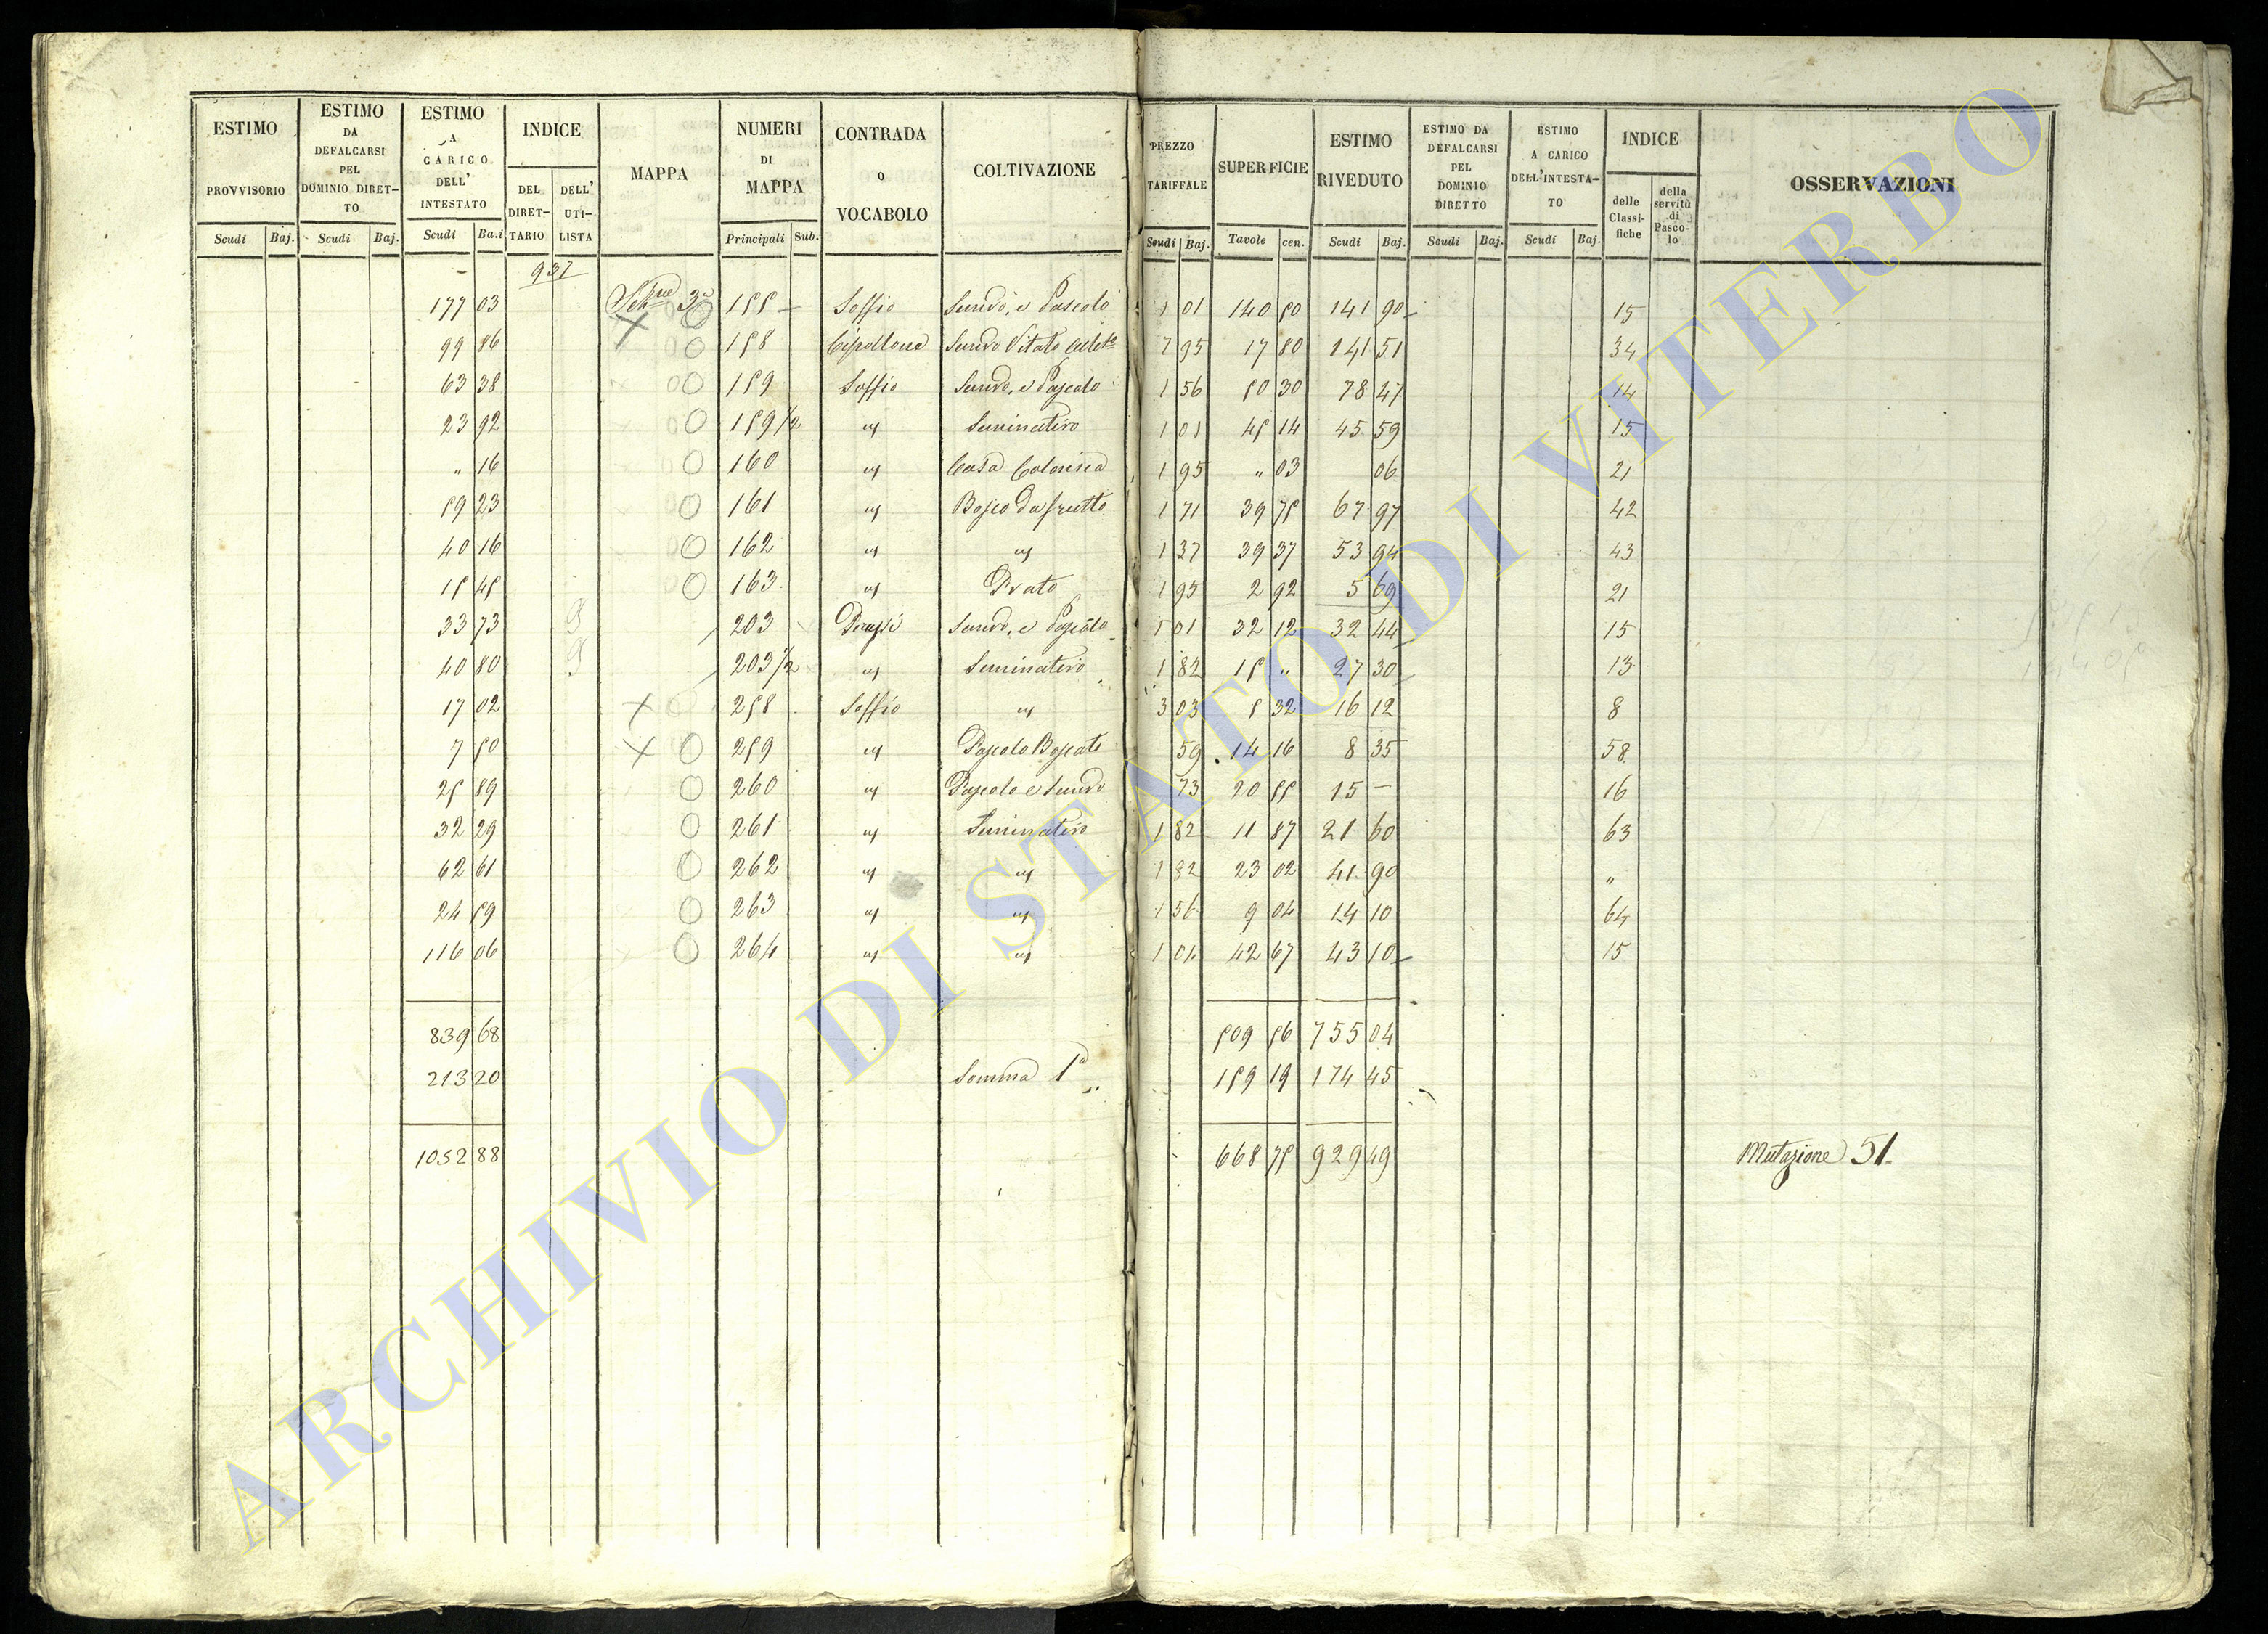 ESTIMO PROVVISORIO Scudi Baj.
ESTIMO DA DEFALCARSI PEL DOMINIO DIRET-TO Scudi Baj.
ESTIMO A CARICO DELL' INTESTATO Scudi Ba.i
INDICE DEL DIRET-TARIO DELL' UTI-LISTA
MAPPA
NUMERI DI MAPPA Principali Sub.
CONTRADA O VOCABOLO
COLTIVAZIONE
PREZZO TARIFFALE Scudi Baj.
SUPERFICIE Tavole cen.
ESTIMO RIVEDUTO Scudi Baj.
ESTIMO DA DEFALCARSI PEL DOMINIO DIRETTO Scudi Baj.
ESTIMO A CARICO DELL'INTESTA-TO Scudi Baj.
INDICE delle Classi-fiche della servitù di Pasco-lo
OSSERVAZIONI
937
177 03 3a 155 Soffio Semvo, e Pascolo 1 01 140 50 141 90 15
99 86 158 Semvo Vitato 7 95 17 80 141 51 34
63 38 159 Soffio Semvo, e Pascolo 1 56 50 30 78 47 14
23 92 159 1/2 " Seminativo 1 01 45 14 45 59 15
" 16 160 " Casa Colonica 1 95 " 03 06 21
59 23 161 " Bosco da frutto 1 71 39 75 67 97 42
40 16 162 " " 1 37 39 37 53 94 43
15 45 163 " Prato 1 95 2 92 5 69 21
33 73 203 Semvo, e Pascolo 1 01 32 12 32 44 15
40 80 203 1/2 " Seminativo 1 82 15 " 27 30 13
17 02 258 Soffio " 3 03 5 32 16 12 8
7 50 259 " Pascolo Boscato 59 14 16 8 35 58
25 89 260 " Pascolo e Semvo 73 20 55 15 – 16
32 29 261 " Seminativo 1 82 11 87 21 60 63
62 61 262 " " 1 82 23 02 41 90 "
24 59 263 " " 1 56 9 04 14 10 64
116 06 264 " " 1 01 42 67 43 10 15
839 68 509 56 755 04
213 20 Somma 1a 159 19 174 45
1052 88 668 75 929 49 Mutazione 51
ARCHIVIO DI STATO DI VITERBO